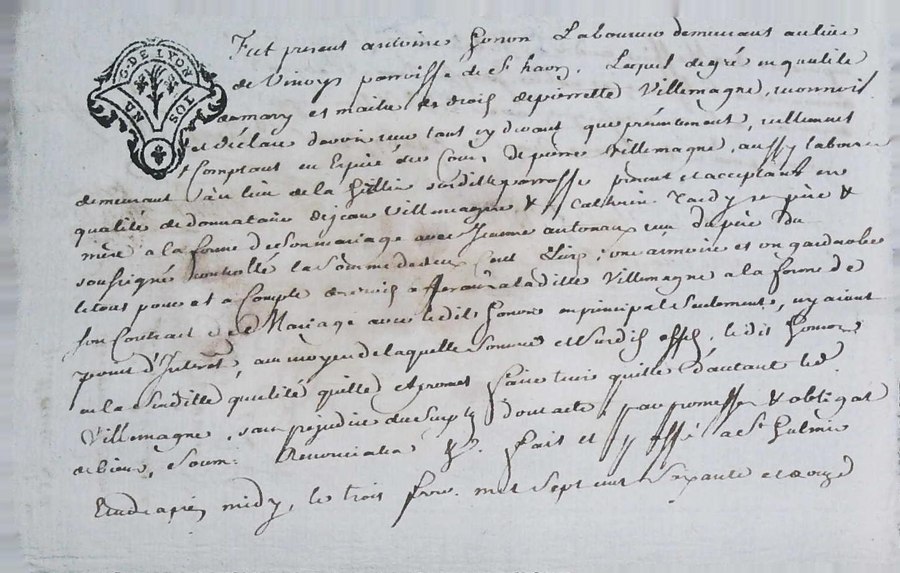 G. DE LYON
UN SOL
Fut present antoine Gonon Laboureur demeurant au lieu
de Vinoys parroisse de St haon, Lequel de gré en qualité
de mary et maitre des droits de pierrette Villemagne, reconnoit
et déclare d'avoir reçu tant cy devant que présentement, réellement
Comptant en Espèce du Cours de pierre Villemagne, aussy laboureur
demeurant au lieu de la parroisse présent et acceptant en
qualité de donnataire de jean Villemagne & Catherine Tardy ses père &
mère à la forme de son mariage avec Jeanne reçu du
soussigné controllé la Somme de deux Cent Livres, une armoire et un garderobe
le tout pour et a Compte a la ditte Villemagne a la forme de
son Contract de Mariage avec ledit Gonon en principal Seulement, ny aiant
point d'Interet, au moyen de laquelle Somme et Susdits effets, le dit Gonon
en la Susditte qualité quitte et promet faire tenir quitte d'autant led.
Villemagne, sans préjudice du Surplus dont acte, par promesse & obligat
de biens, & soum: Renonciation &c. fait et passé a St Galmier
Etude après midy, le trois mil sept cent Soixante et onze